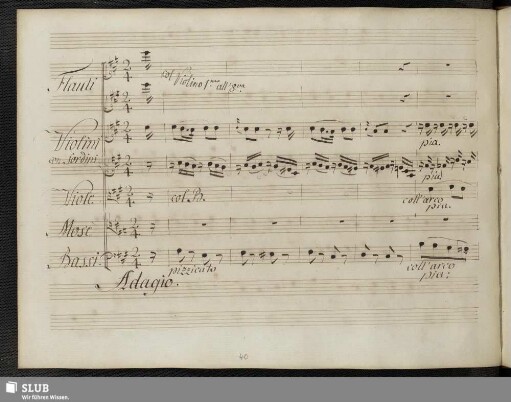 Flauti
col Violino 1mo all' 8va
Violini
con Sordini
pia.
pia.
Viole
col B.
coll'arco
pia.
Mosè
Bassi
pizzicato
coll'arco
pia:
Adagio.
40
SLUB
Wir führen Wissen.